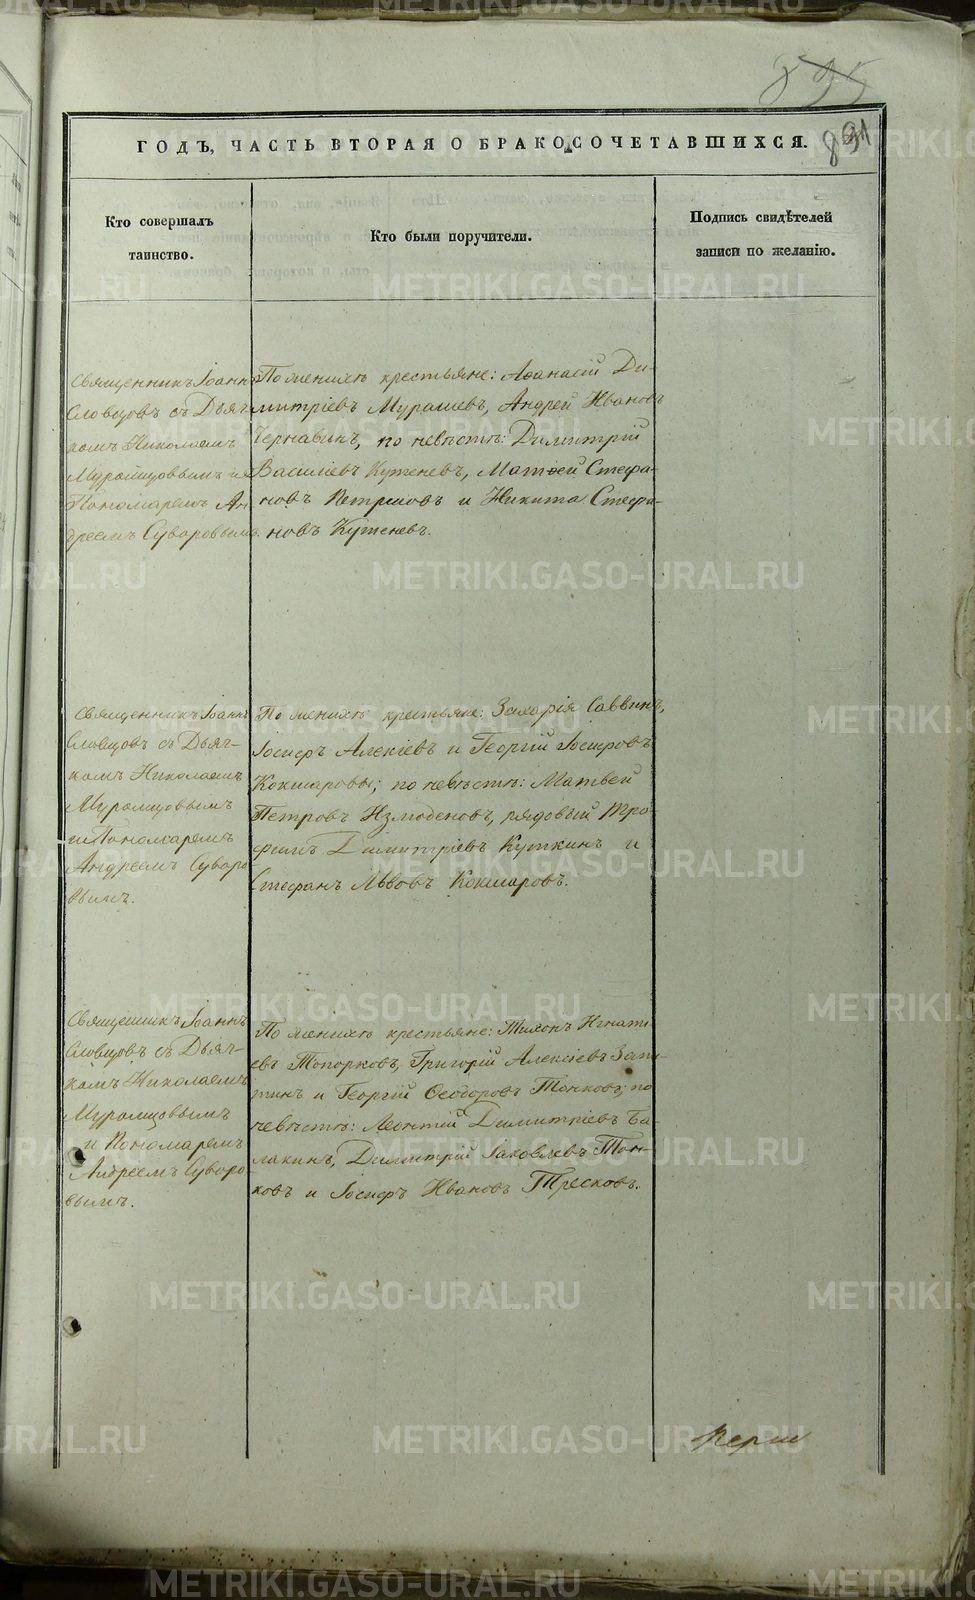 895
891
ГОДЪ, ЧАСТЬ ВТОРАЯ О БРАКОСОЧЕТАВШИХСЯ.
Кто совершалъ
таинство.
Кто были поручители.
Подпись свидѣтелей
записи по желанію.
Священникъ Іоаннъ
Словцовъ съ Дьяч-
комъ Николаемъ
Муромцовымъ и
Пономаремъ Ан
дреемъ Суворовымъ.
По женихѣ крестьяне: Аѳанасій Ди-
митріевъ Мурашевъ, Андрей Ивановъ
Чернавинъ, по невѣстѣ: Димитрій
Василіевъ Кутеневъ, Матѳей Стефа-
новъ Петровъ и Никита Стефа-
новъ Кутеневъ.
Священникъ Іоаннъ
Словцовъ съ Дьяч-
комъ Николаемъ
Муромцовымъ
и Пономаремъ
Андреемъ Суворо
вымъ.
По женихѣ крестьяне: Захарія Саввинъ,
Іосифъ Алексіевъ и Георгій Іосифовъ
Кокшаровы; по невѣстѣ: Матвей
Петровъ Измоденовъ, рядовый Тро
фимъ Димитріевъ Куткинъ и
Стефанъ Львовъ Кокшаровъ.
Священникъ Іоаннъ
Словцовъ съ Дьяч-
комъ Николаемъ
Муромцовымъ
и Пономаремъ
Андреемъ Суворо
вымъ.
По женихѣ крестьяне: Тихонъ Игнаті-
евъ Топорковъ, Григорій Алексіевъ Запя-
тинъ и Георгій Ѳеодоровъ Тонковъ; по
невѣстѣ: Леонтій Димитріевъ Ба-
лакинъ, Димитрій Іаковлевъ Тон-
ковъ и Іосифъ Ивановъ Тресковъ.
METRIKI.GASO-URAL.RU